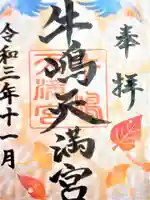 奉拝
牛嶋天満宮
令和三年十一月